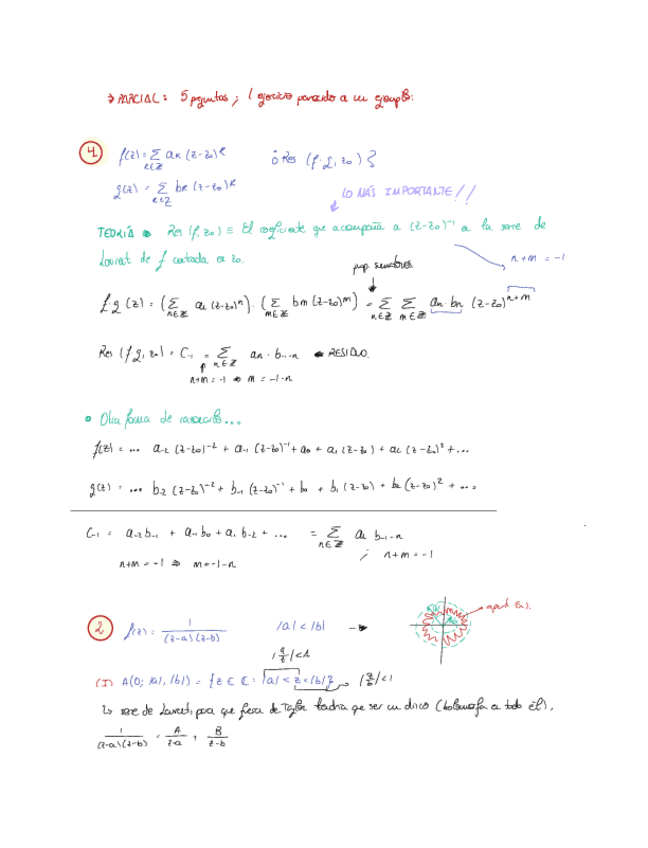 → PARCIAL: 5 preguntas; 1 ejercicio parecido a un ejemplo.
1 f(z) = Σ_{k∈ℤ} a_k (z-z₀)^k ¿Res (f·g, z₀)?
g(z) = Σ_{k∈ℤ} b_k (z-z₀)^k
LO MÁS IMPORTANTE!!
TEORÍA → Res (f, z₀) ≡ El coeficiente que acompaña a (z-z₀)⁻¹ a la serie de
Laurent de f centrada en z₀.
n+m = -1
f·g (z) = (Σ_{n∈ℤ} a_n (z-z₀)^n) · (Σ_{m∈ℤ} b_m (z-z₀)^m) = Σ_{n∈ℤ} Σ_{m∈ℤ} a_n · b_n (z-z₀)^{n+m}
Res (f g, z₀) = C₋₁ = Σ_{n∈ℤ} a_n · b_{-1-n} ← RESIDUO.
n+m = -1 ⇒ m = -1-n
• Otra forma de
f(z) = ... a₋₂ (z-z₀)⁻² + a₋₁ (z-z₀)⁻¹ + a₀ + a₁ (z-z₀) + a₂ (z-z₀)² + ...
g(z) = ... b₋₂ (z-z₀)⁻² + b₋₁ (z-z₀)⁻¹ + b₀ + b₁ (z-z₀) + b₂ (z-z₀)² + ...
C₋₁ = a₋₂ b₋₁ + a₋₁ b₀ + a₁ b₋₂ + ... = Σ_{n∈ℤ} a_n b_{-1-n}
n+m = -1 ⇒ m = -1-n ; n+m = -1
2 f(z) = 1/((z-a)(z-b)) |a| < |b| →
|a/b| < 1
(I) A(0; |a|, |b|) = {z ∈ ℂ : |a| < z < |b|} → |z/b| < 1
↳ serie de Laurent, para que fuera de Taylor tendría que ser un disco (holomorfa en todo él).
1/((z-a)(z-b)) = A/(z-a) + B/(z-b)